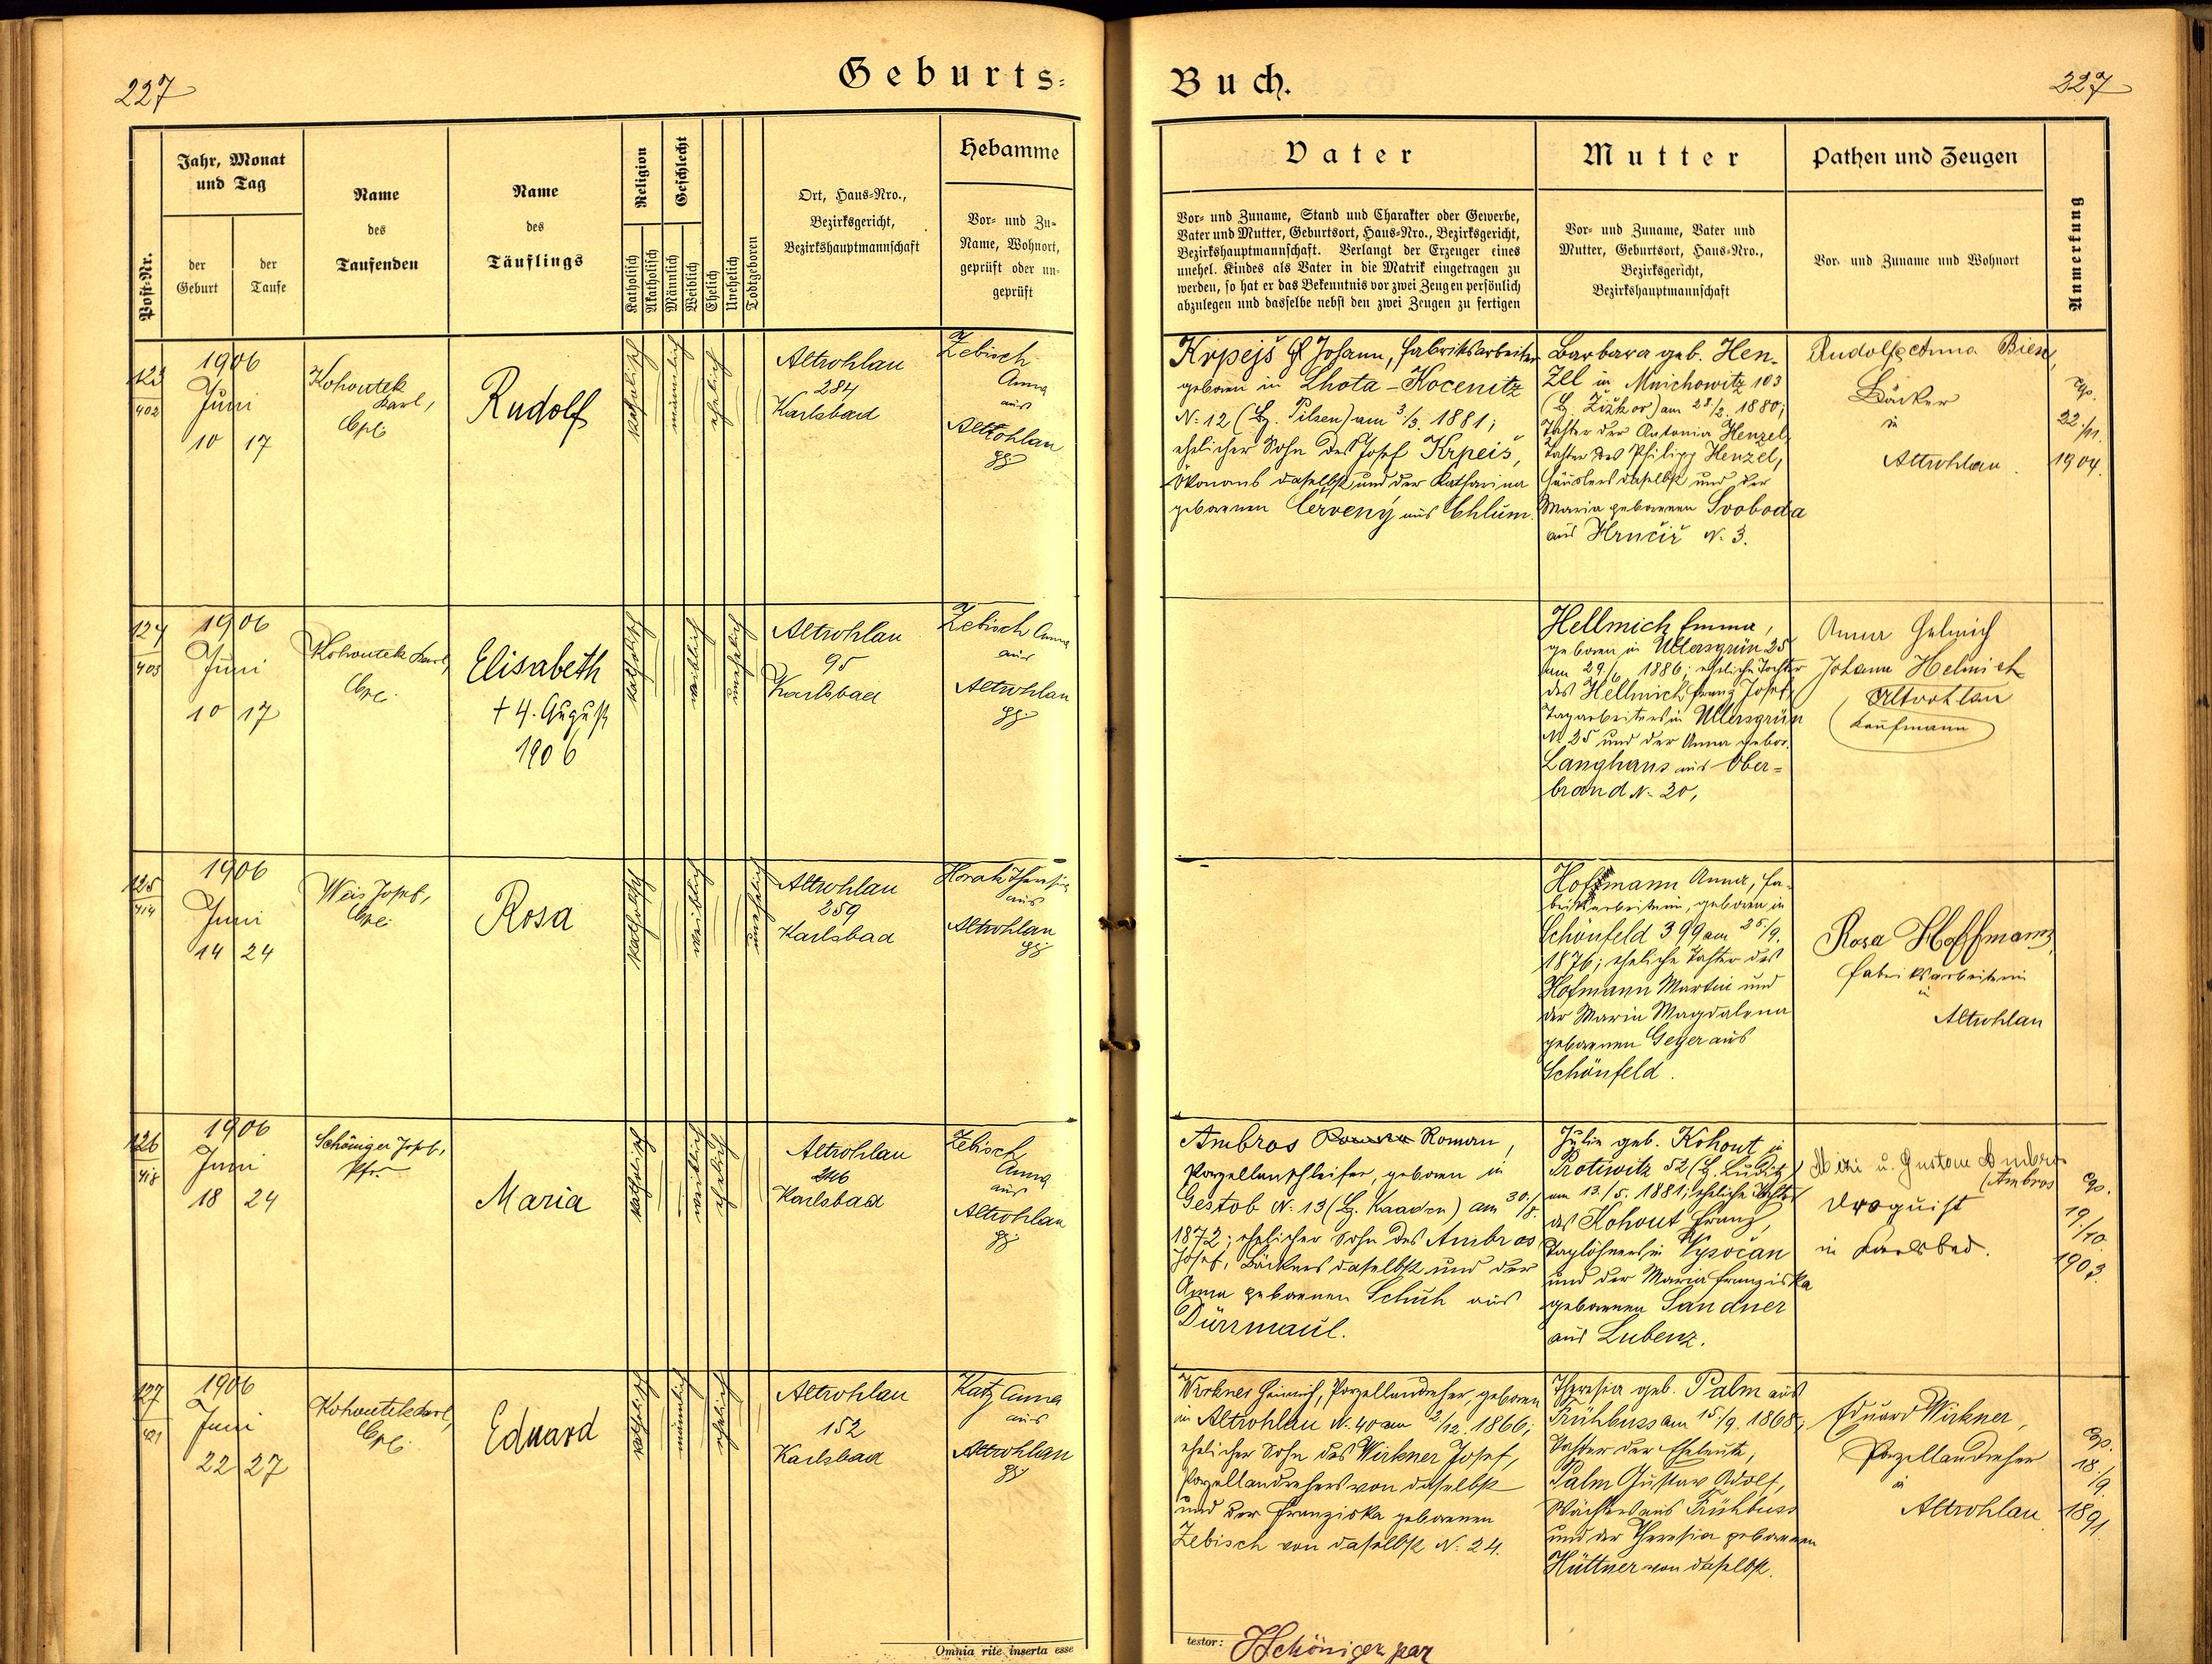 227
Geburts-
Buch.
227
Post-Nr.
Jahr, Monat
und Tag
der
Geburt
der
Taufe
Name
des
Taufenden
Name
des
Täuflings
Religion
Katholisch
Akatholisch
Geschlecht
Männlich
Weiblich
Ehelich
Unehelich
Todtgeboren
Ort, Haus-Nro.,
Bezirksgericht,
Bezirkshauptmannschaft
Hebamme
Vor- und Zu-
Name, Wohnort,
geprüft oder un-
geprüft
Vater
Vor- und Zuname, Stand und Charakter oder Gewerbe,
Vater und Mutter, Geburtsort, Haus-Nro., Bezirksgericht,
Bezirkshauptmannschaft. Verlangt der Erzeuger eines
unehel. Kindes als Vater in die Matrik eingetragen zu
werden, so hat er das Bekenntnis vor zwei Zeugen persönlich
abzulegen und dasselbe nebst den zwei Zeugen zu fertigen
Mutter
Vor- und Zuname, Vater und
Mutter, Geburtsort, Haus-Nro.,
Bezirksgericht,
Bezirkshauptmannschaft
Pathen und Zeugen
Vor- und Zuname und Wohnort
Anmerkung
123
402
1906
Juni
10 17
Kohoutek
Karl,
Cpl.
Rudolf
katholisch
männlich
ehelich
Altrohlau
284
Karlsbad
Zebisch
Anna
aus
Altrohlau
gp.
Krpejš Johann, Fabriksarbeiter
geboren in Lhota-Kocenitz
N. 12 (Bz. Pilsen) am 3./3. 1881;
ehelicher Sohn des Josef Krpeiš,
Ökonoms daselbst und der Katharina
geborenen Červený aus Chlum.
Barbara geb. Hen-
zel in Mnichowitz 103
(Bz. Žižkov) am 28./2. 1880;
Tochter der Antonia Henzel,
Tochter des Philipp Henzel,
Häuslers daselbst und der
Maria geborenen Svoboda
aus Hručiř N. 3.
Rudolf & Anna
Bäcker
in
Altrohlau.
cop.
22./11.
1904.
124
403
1906
Juni
10 17
Kohoutek Karl,
Cpl.
Elisabeth
+ 4. August
1906
katholisch
weiblich
unehelich
Altrohlau
95
Karlsbad
Zebisch Anna
aus
Altrohlau
gp.
Hellmich Emma,
geboren in Ullersgrün 25
am 29./6. 1886; eheliche Tochter
des Hellmich Franz Josef,
Tagarbeiters in Ullersgrün
N. 25 und der Anna gebor.
Langhans aus Ober-
brand N. 20,
Anna Helmich
Johann Helmich
Altrohlau
Kaufmann
125
414
1906
Juni
14 24
Weis Josef,
Cpl.
Rosa
katholisch
weiblich
unehelich
Altrohlau
259
Karlsbad
Horak Theresia
aus
Altrohlau
gp.
Hofmann Anna, Fa-
briksarbeiterin, geboren in
Schönfeld 399 am 25./9.
1876; eheliche Tochter des
Hofmann Martin und
der Maria Magdalena
geborenen Geyer aus
Schönfeld.
Rosa Hoffmann,
Fabriksarbeiterin
in
Altrohlau
126
418
1906
Juni
18 24
Schöniger Josef,
Pfr.
Maria
katholisch
weiblich
ehelich
Altrohlau
246
Karlsbad
Zebisch
Anna
aus
Altrohlau
gp.
Ambros Roman,
Porzellanschleifer, geboren in
Gestob N. 13 (Bz. Kaaden) am 30./8.
1872; ehelicher Sohn des Ambros
Josef, Bäckers daselbst und der
Anna geborenen Schuh aus
Dürrmaul.
Julie geb. Kohout in
Protiwitz 52 (Bz. Luditz)
am 13./5. 1881; eheliche Tochter
des Kohout Franz,
Taglöhners in Vysočan
und der Maria Franziska
geborenen Sandner
aus Lubenz.
Mizi u. Gustav Ambros
(Ambros
Droguist
in Karlsbad.
cop.
19./10.
1903.
127
421
1906
Juni
22 27
Kohoutek Karl,
Cpl.
Eduard
katholisch
männlich
ehelich
Altrohlau
152
Karlsbad
Katz Anna
aus
Altrohlau
gp.
Wirkner Heinrich, Porzellandreher, geboren
in Altrohlau N. 40 am 2./12. 1866;
ehelicher Sohn des Wirkner Josef,
Porzellandrehers von daselbst
und der Franziska geborenen
Zebisch von daselbst N. 24.
Theresia geb. Palm aus
Frühbuss am 15./9. 1868;
Tochter der Eheleute,
Palm Gustav Adolf,
Wächters aus Frühbuss
und der Theresia geborenen
Hüttner von daselbst.
Eduard Wirkner,
Porzellandreher
in
Altrohlau
cop.
18./9.
1891.
Omnia rite inserta esse
testor: JSchöniger par